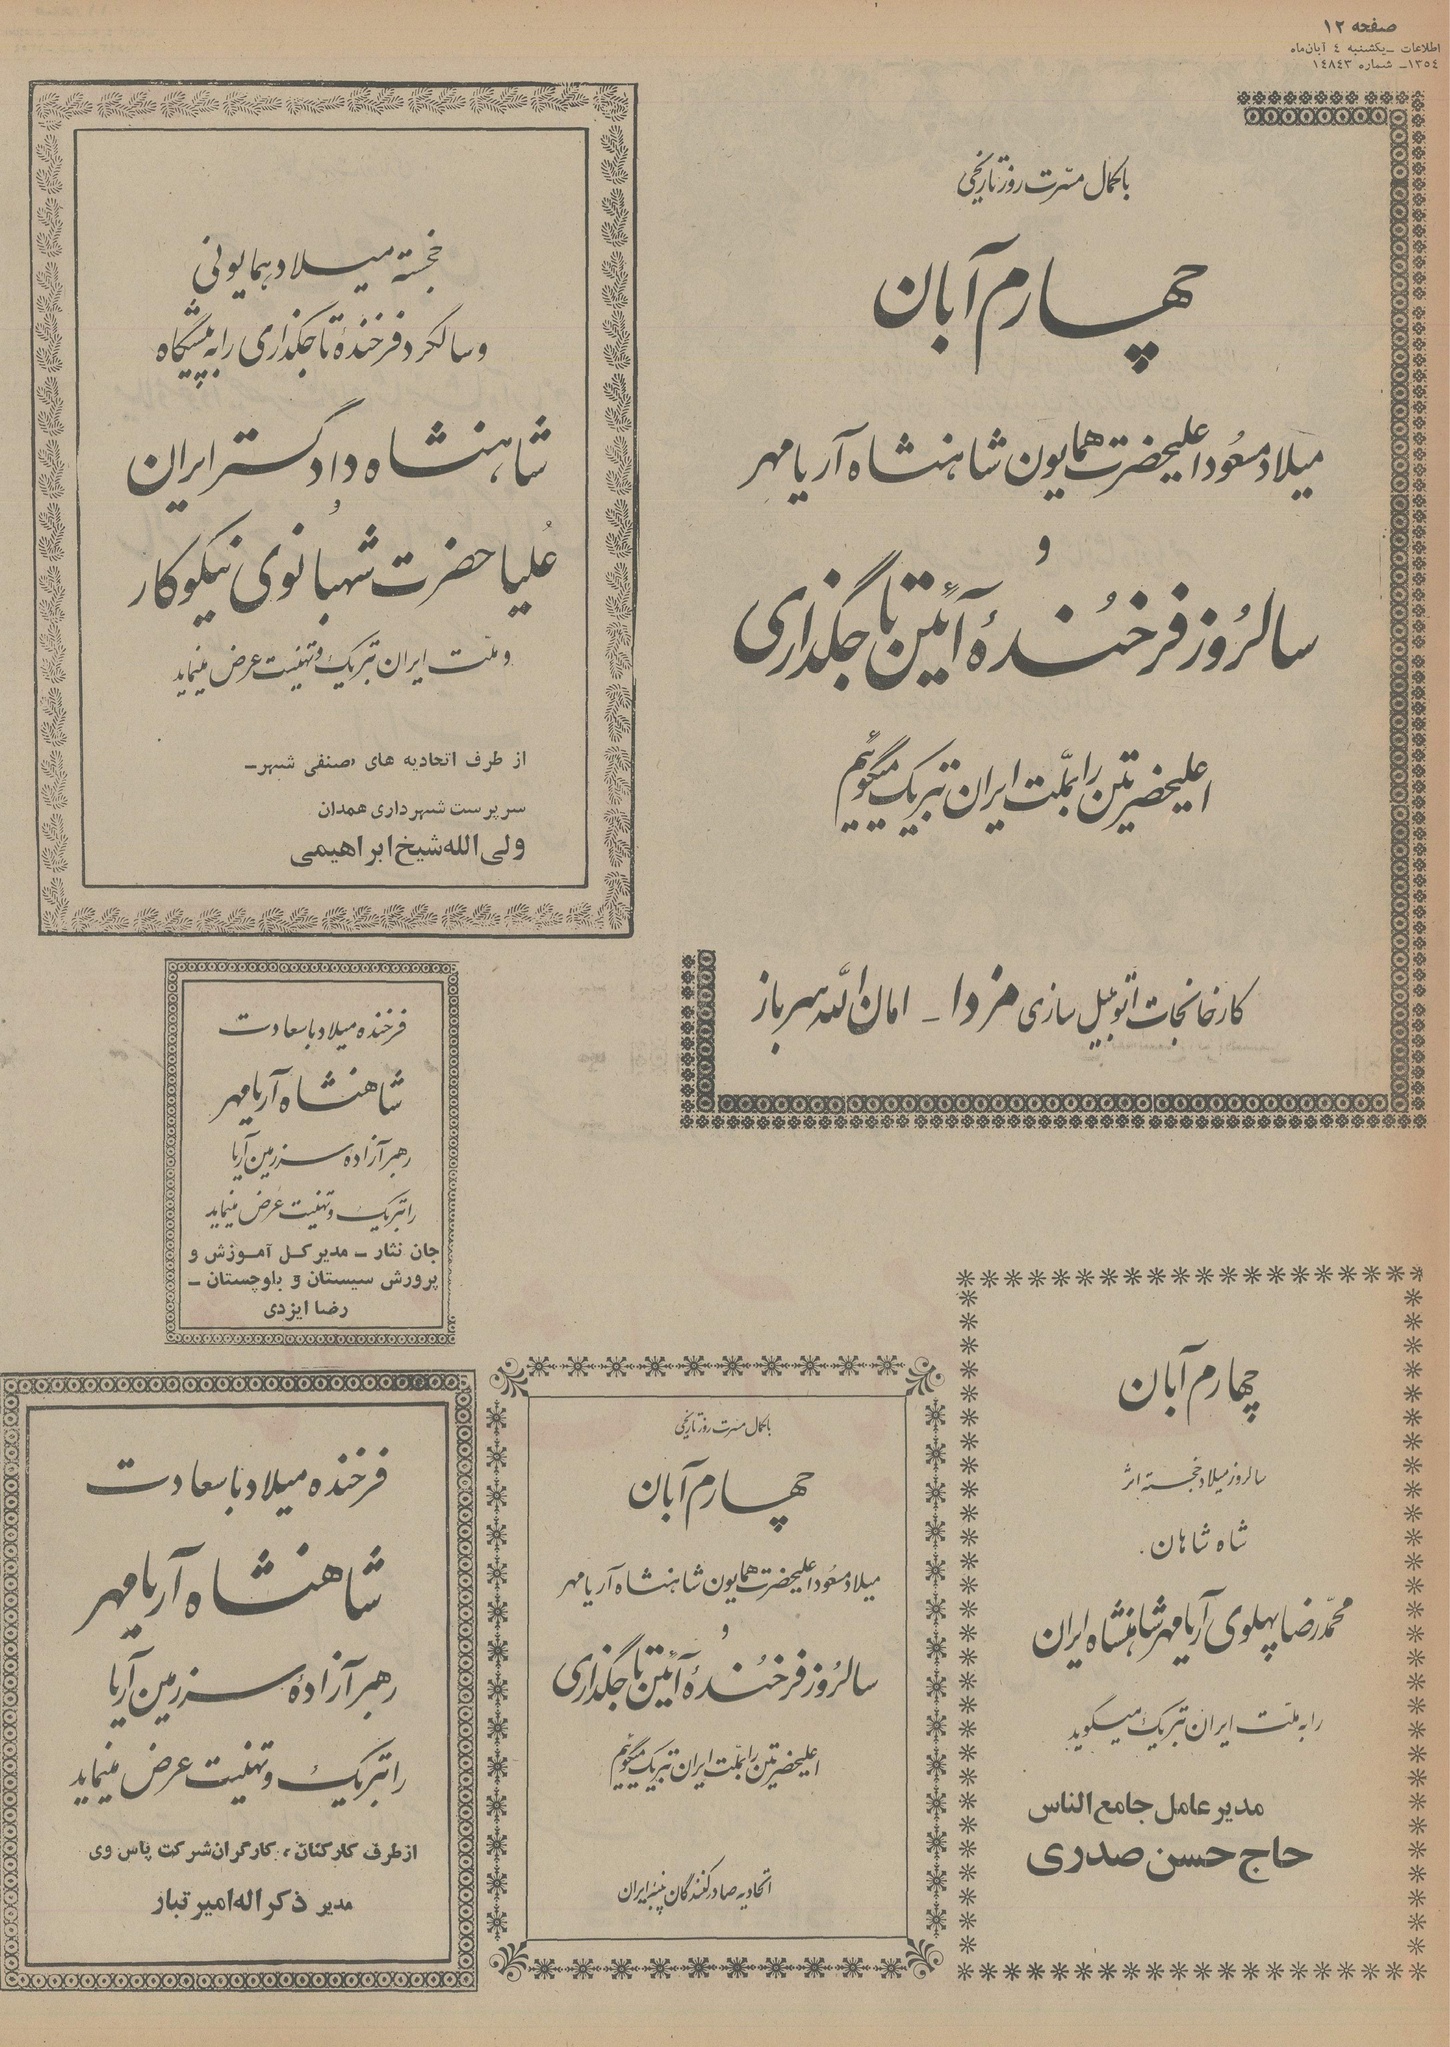 صفحه ۱۲
اطلاعات ـ یکشنبه ۴ آبان‌ماه
۱۳۵۴ـ شماره ۱۴۸۴۳
باکمال مسّرت روز تاریخی
چهارم آبان
میلاد مسعود اعلیحضرت همایون شاهنشاه آریامهر
و
سالرُوز فرخُندهٔ آئین تاجگذاری
اعلیحضرتین را بملّت ایران تبریک میگوئیم
کارخانجات اتومبیل سازی مزدا ـ امان‌الله سرباز
خجسته میلاد همایونی
و سالگرد فرخندهٔ تاجگذاری را به پیشگاه
شاهنشاه دادگستر ایران
و
عُلیاحضرت شهبانوی نیکوکار
و ملت ایران تبریک و تهنیت عرض مینماید
از طرف اتحادیه های صنفی شهر ـ
سرپرست شهرداری همدان
ولی‌الله شیخ ابراهیمی
فرخنده میلاد باسعادت
شاهنشاه آریامهر
رهبر آزاده سرزمین آریا
را تبریک و تهنیت عرض مینماید
جان نثار ـ مدیر کل آموزش و
پرورش سیستان و بلوچستان ـ
رضا ایزدی
چهارم آبان
سالروز میلاد خجسته اثر
شاه شاهان.
محمّدرضا پهلوی آریامهر شاهنشاه ایران
را به ملت ایران تبریک میگوید
مدیر عامل جامع الناس
حاج حسن صدری
باکمال مسرت روز تاریخی
چهارم آبان
میلاد مسعود اعلیحضرت همایون شاهنشاه آریامهر
و
سالرُوز فرخُندهٔ آئین تاجگذاری
اعلیحضرتین را بملّت ایران تبریک میگوئیم
اتحادیه صادرکنندگان پنبه ایران
فرخنده میلاد باسعادت
شاهنشاه آریامهر
رهبر آزاده سرزمین آریا
را تبریک و تهنیت عرض مینماید
از طرف کارکنان، کارگران شرکت پاس وی
مدیر ذکراله امیرتبار